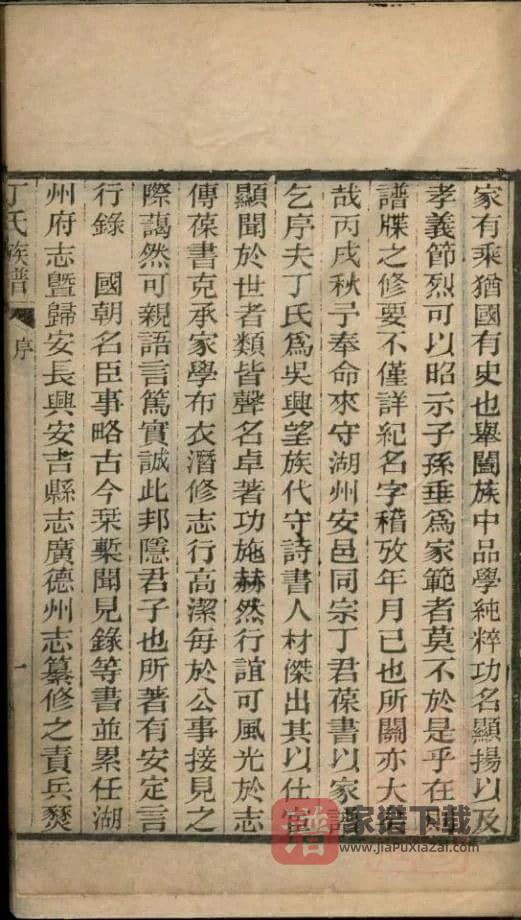 家有乘猶國有史也舉闔族中品學純粹功名顯揚以及
孝義節烈可以昭示子孫垂爲家範者莫不於是乎在
譜牒之修要不僅詳紀名字稽攷年月已也所關亦大
哉丙戌秋予奉命來守湖州安邑同宗丁君葆書以家
乞序夫丁氏爲吳興望族代守詩書人材傑出其以仕宦
顯聞於世者類皆聲名卓著功施赫然行誼可風光於志
傳葆書克承家學布衣潛修志行高潔每於公事接見之
際藹然可親語言篤實誠此邦隱君子也所著有安定言
行錄 國朝名臣事略古今栞槧聞見錄等書並累任湖
州府志暨歸安長興安吉縣志廣德州志纂修之責兵燹
丁氏族譜 序 一
譜
家譜下载
www.jiaPuxiazai.com